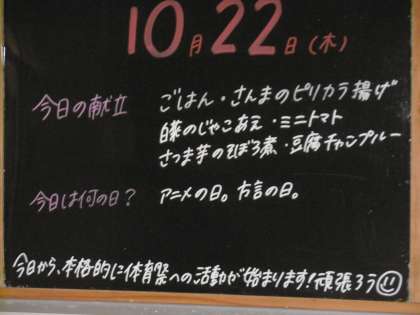 10月22日(木)
今日の献立 ごはん・さんまのピリカラ揚げ
白菜のじゃこあえ・ミニトマト
さつま芋のそぼろ煮・豆腐チャンプルー
今日は何の日? アニメの日。方言の日。
今日から、本格的に体育祭への活動が始まります!頑張ろう